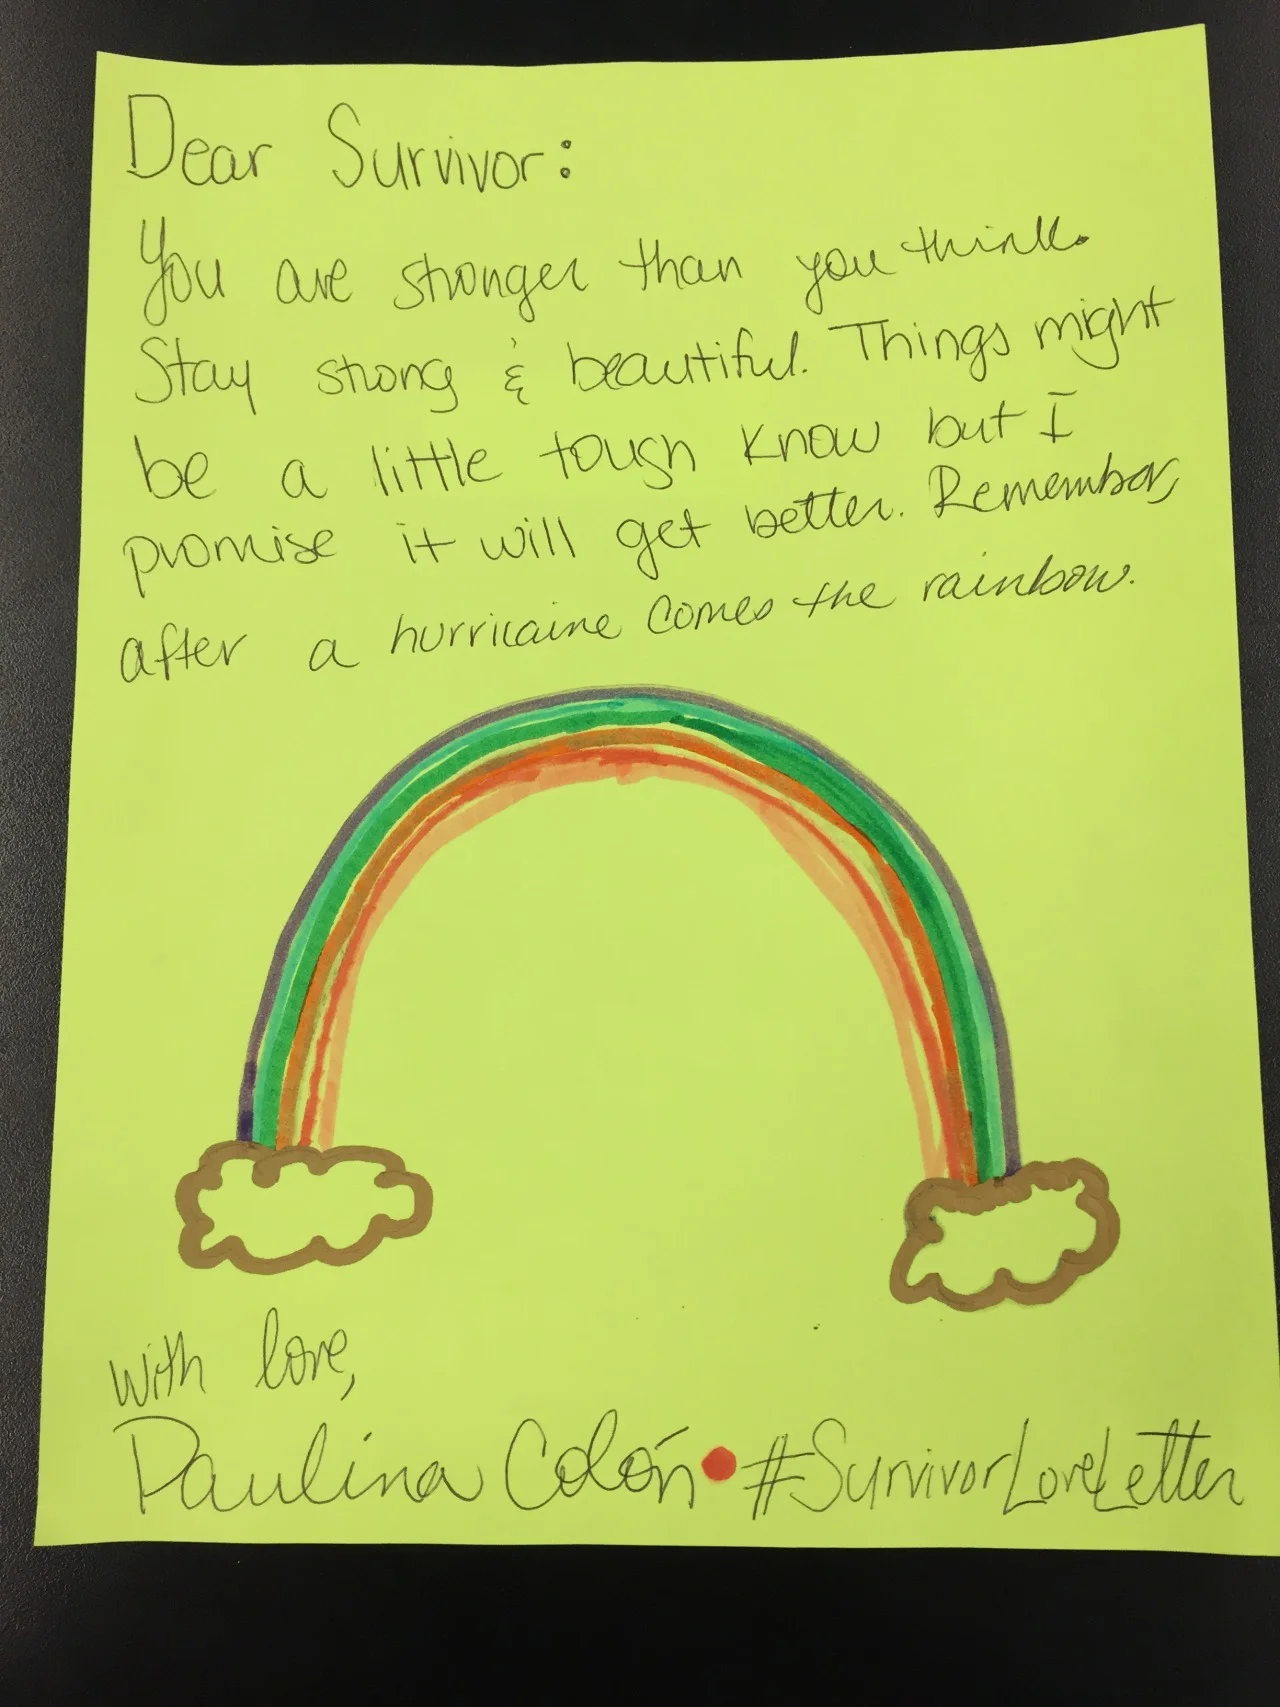 Dear Survivor:
You are stronger than you think.
Stay strong & beautiful. Things might
be a little tough know but I
promise it will get better. Remember,
after a hurricaine comes the rainbow.
With love,
Paulina Colón • #SurvivorLoveLetter